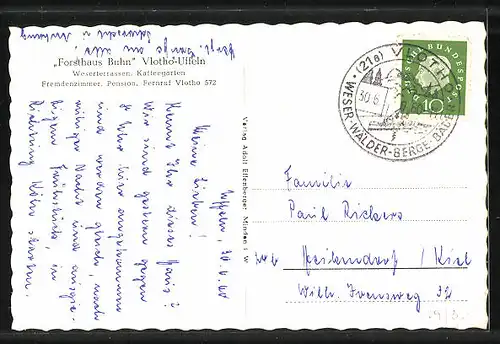 „Forsthaus Buhn" Vlotho-Uffeln
Weserterrassen, Kaffeegarten
Fremdenzimmer, Pension, Fernruf Vlotho 572
Uffeln, 30.6.60
Meine Lieben!
Kennt Ihr dieses Haus?
Wir sind gestern gegen
8 Uhr hier angekommen
und werden gleich, nach
ruhiger Nacht und ausgie-
bigem Frühstück, in
Richtung Köln starten.
Herzl. Grüße an alle
Verlag Adolf Effenberger, Minden i. W.
(21a) VLOTHO
30.6.
WESER-WÄLDER-BERGE-BÄDER
DEUTSCHE BUNDESPOST
10
Familie
Paul Rickers
Heikendorf / Kiel
Wilh. Ivensweg 32